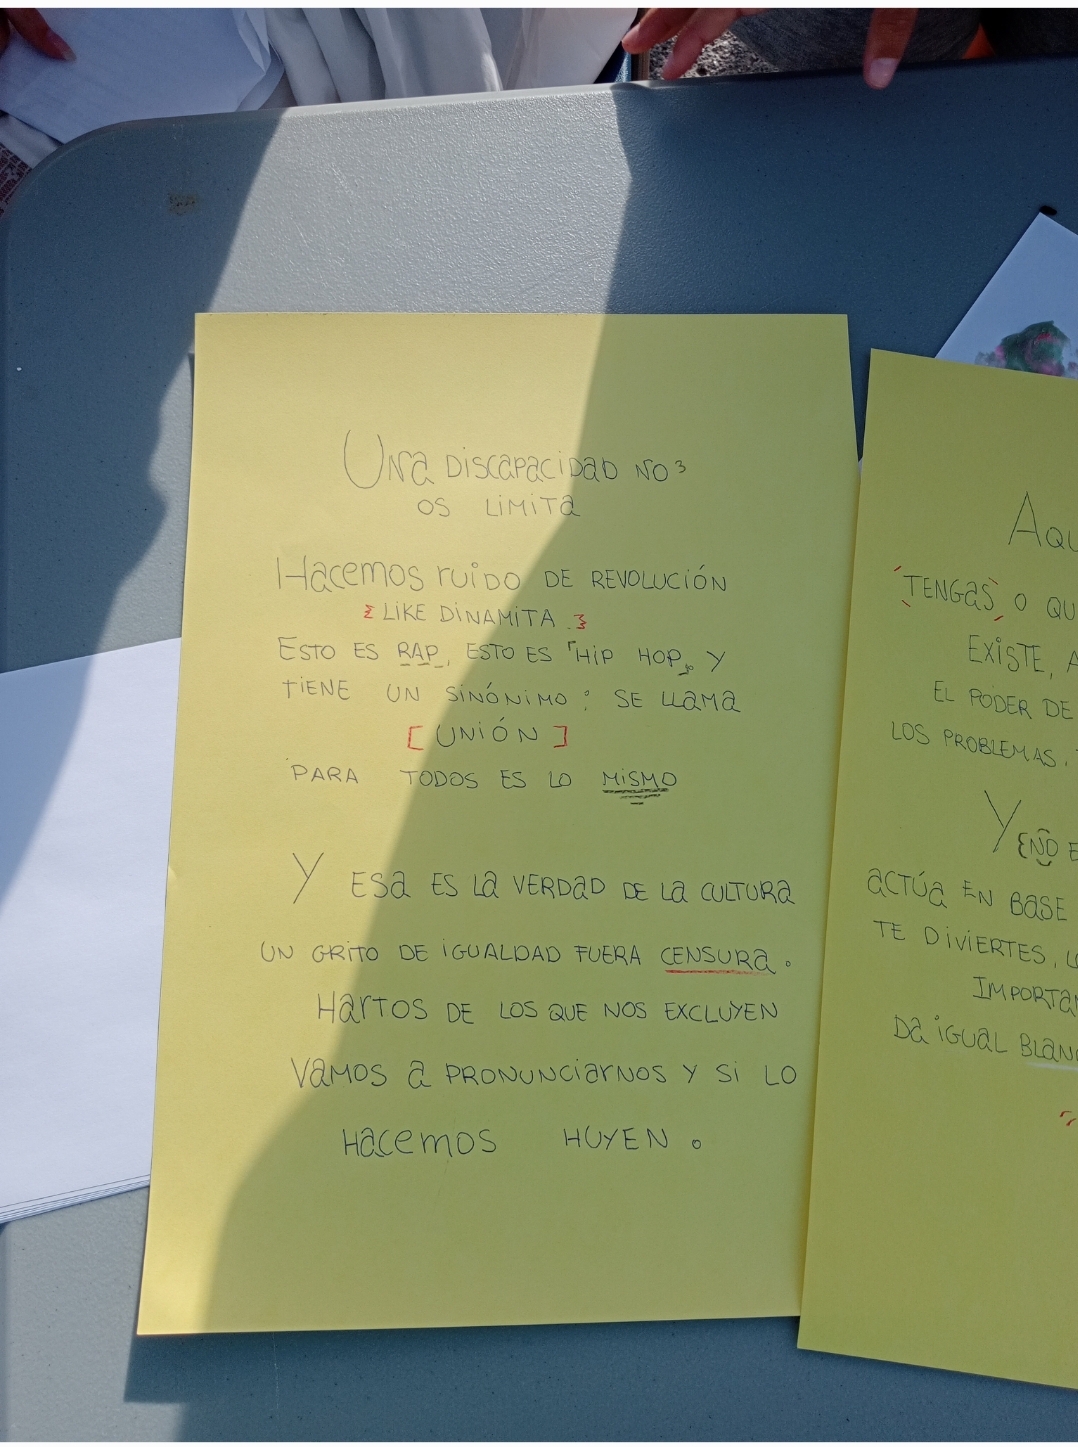 Una DISCAPACIDAD NO
OS LIMITA
Hacemos ruido DE REVOLUCIÓN
LIKE DINAMITA
ESTO ES RAP, ESTO ES "HIP HOP" Y
TIENE UN SINÓNIMO: SE LLAMA
[UNIÓN]
PARA TODOS ES LO MISMO
Y ESA ES LA VERDAD DE LA CULTURA
UN GRITO DE IGUALDAD FUERA CENSURA.
HARTOS DE LOS QUE NOS EXCLUYEN
VAMOS A PRONUNCIARNOS Y SI LO
HACEMOS HUYEN.
TENGAS, O
EXISTE,
EL PODER DE
LOS PROBLEMAS.
Y
ACTÚA EN BASE
TE DIVIERTES,
DA IGUAL